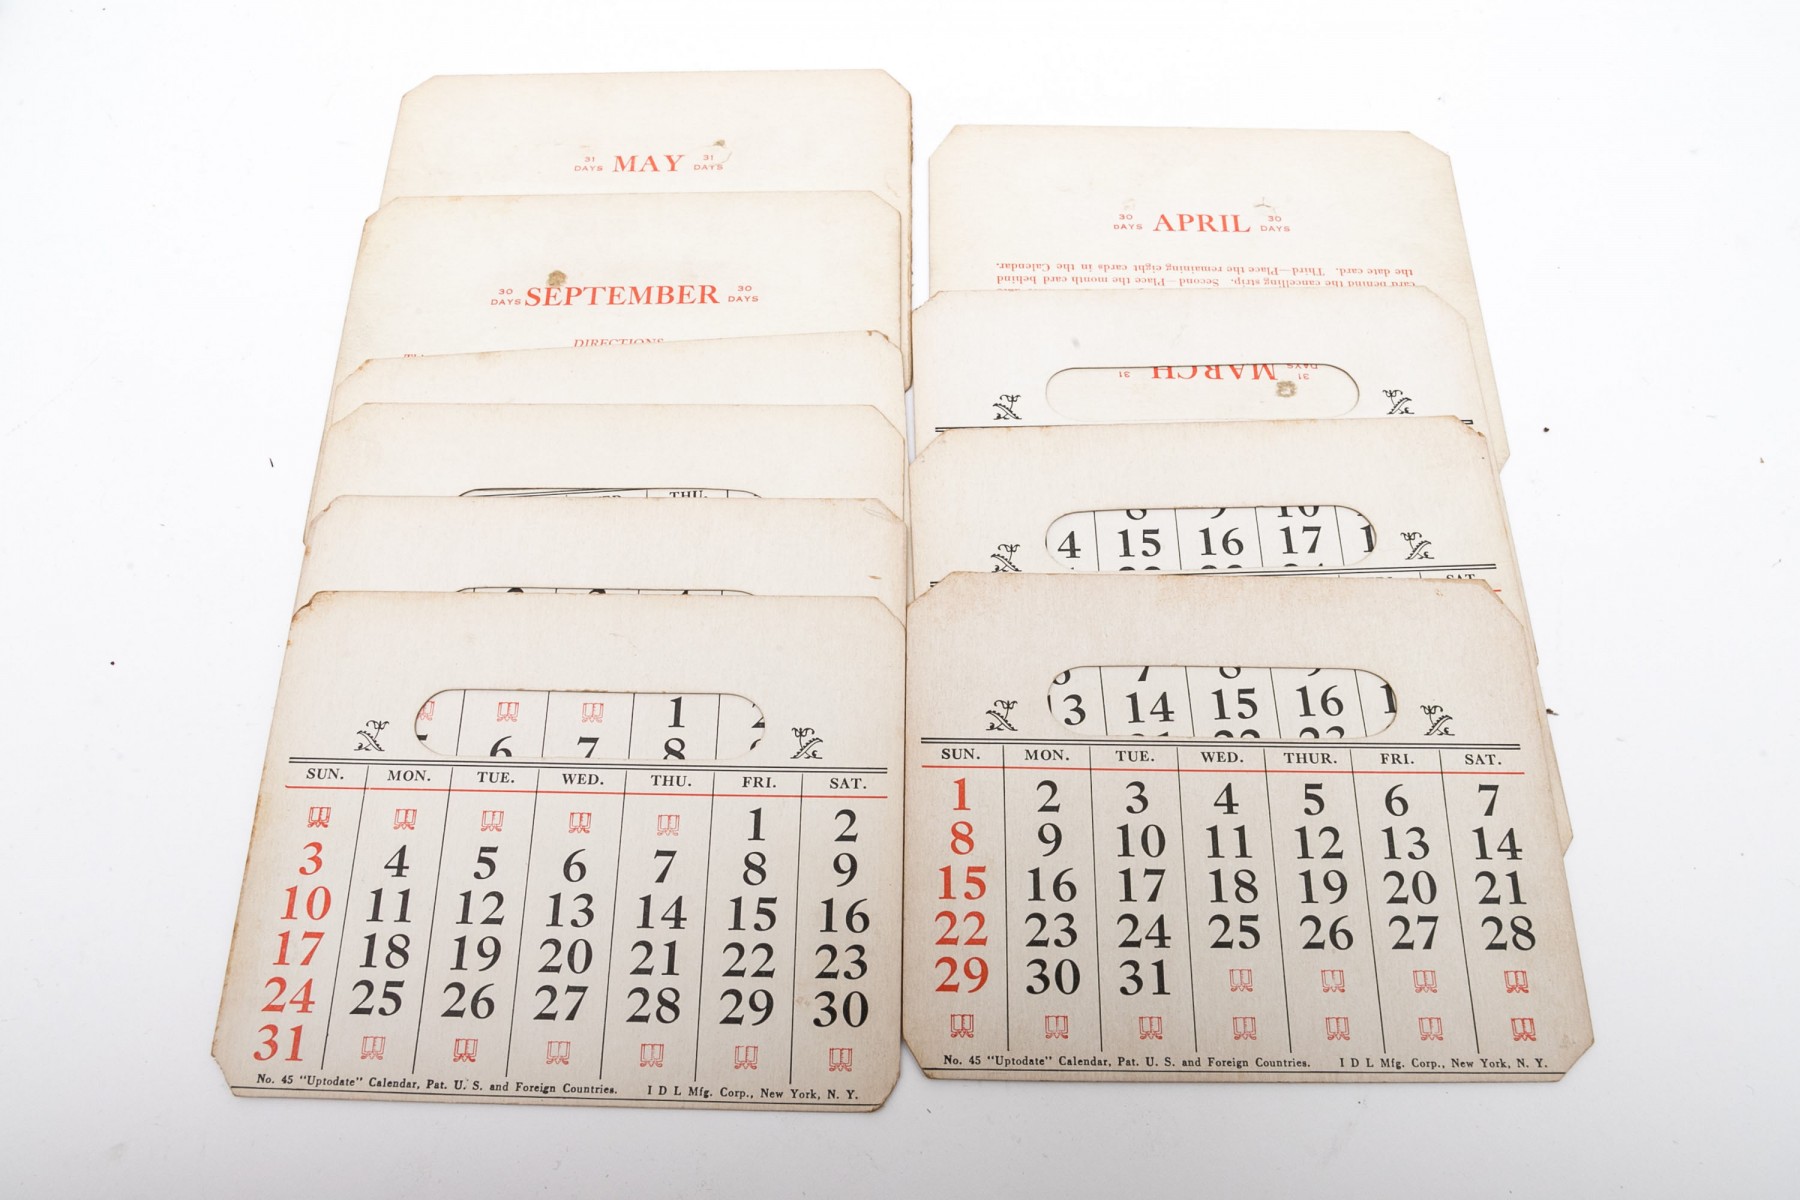 31 DAYS MAY 31 DAYS
30 DAYS SEPTEMBER 30 DAYS
DIRECTIONS
THU.
1
6 7 8
SUN. MON. TUE. WED. THU. FRI. SAT.
1 2
3 4 5 6 7 8 9
10 11 12 13 14 15 16
17 18 19 20 21 22 23
24 25 26 27 28 29 30
31
No. 45 "Uptodate" Calendar, Pat. U. S. and Foreign Countries. I D L Mfg. Corp., New York, N. Y.
30 DAYS APRIL 30 DAYS
the date card. Third—Place the remaining eight cards in the Calendar.
card behind the cancelling strip. Second—Place the month card behind
31 DAYS MARCH 31
8 9 10
15 16 17
SAT.
7 8 9
14 15 16
SUN. MON. TUE. WED. THUR. FRI. SAT.
1 2 3 4 5 6 7
8 9 10 11 12 13 14
15 16 17 18 19 20 21
22 23 24 25 26 27 28
29 30 31
No. 45 "Uptodate" Calendar, Pat. U. S. and Foreign Countries. I D L Mfg. Corp., New York, N. Y.